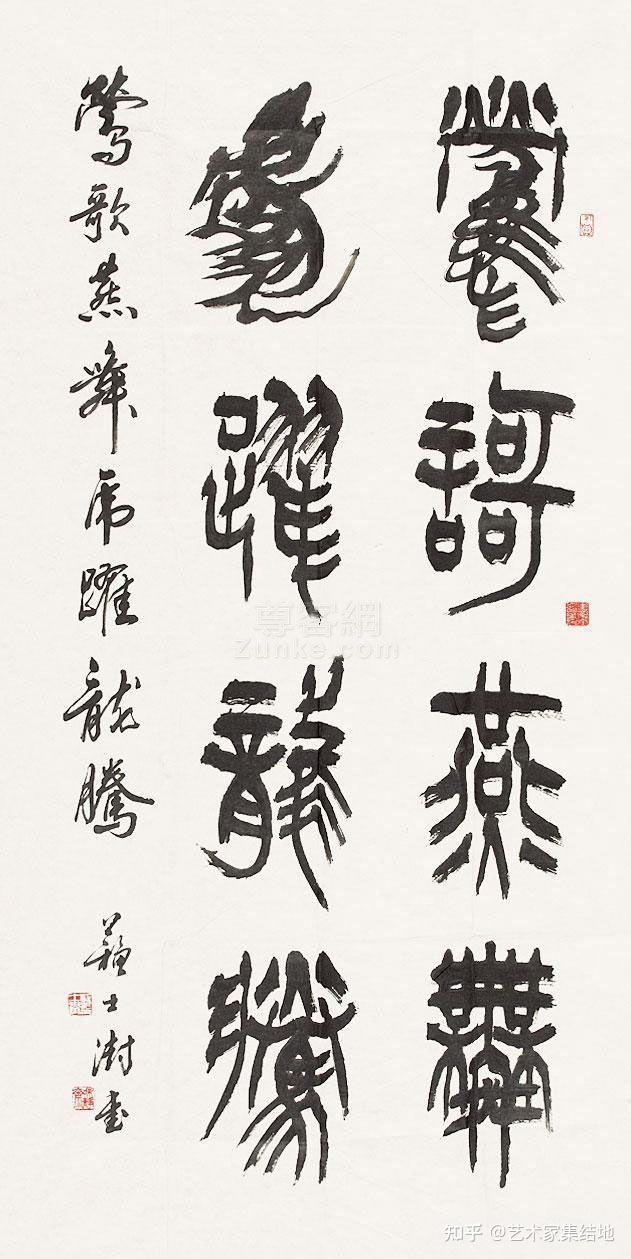 鶯謌燕舞
虎躍龍騰
鶯歌燕舞虎躍龍騰
蘇士澍書
尊客網
Zunke.com
知乎 @艺术家集结地